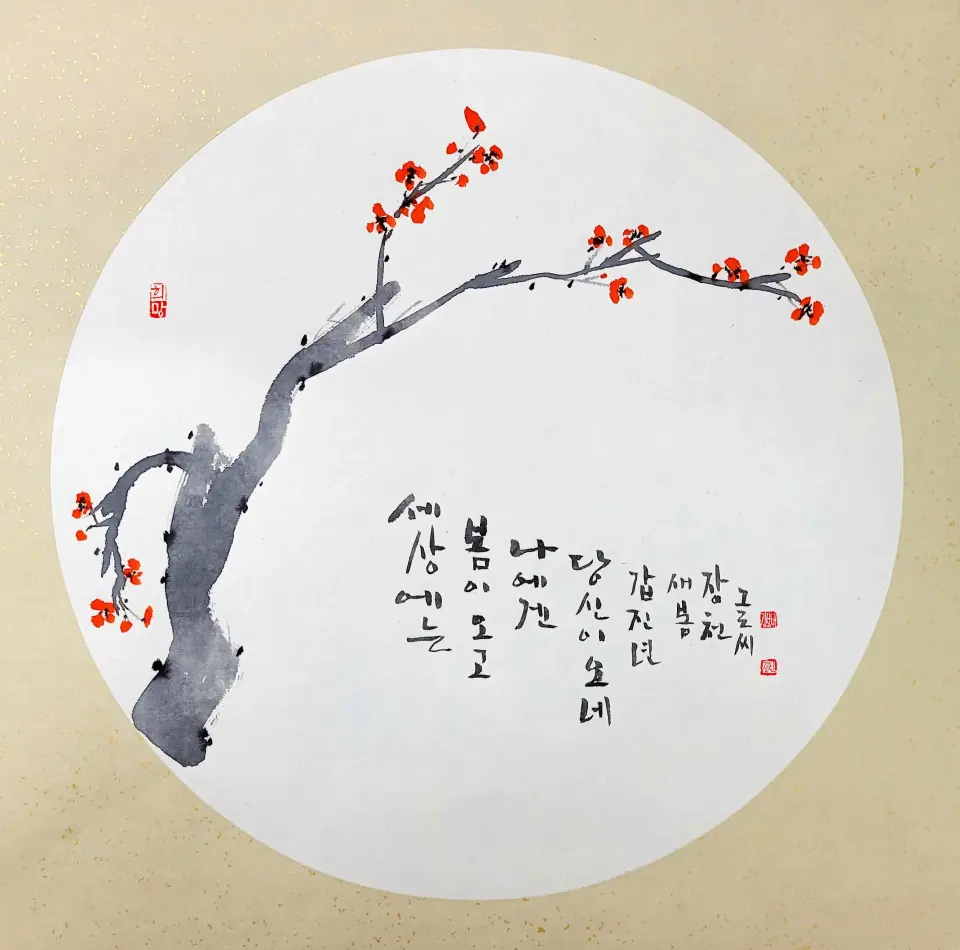 희망
세상에는
봄이 오고
나에겐
당신이 오네
갑진년
새봄
장천
그로씨